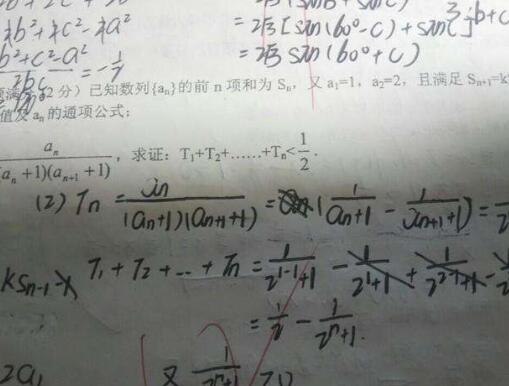 = 2√3 [sin(60°-C) + sinC]
½b²+½c²-½a²
= 2√3 sin(60°+C)
b²+c²-a²
2bc
= -1/7
2分）已知数列{aₙ}的前 n 项和为 Sₙ，又 a₁=1，a₂=2，且满足 Sₙ₊₁=k
值及 aₙ 的通项公式；
aₙ/(aₙ+1)(aₙ₊₁+1)，求证：T₁+T₂+……+Tₙ<1/2.
(2) Tₙ = aₙ/(aₙ+1)(aₙ₊₁+1) = (1/(aₙ+1) - 1/(aₙ₊₁+1)) =
kSₙ₋₁
T₁+T₂+…+Tₙ = 1/(2¹⁻¹+1) - 1/(2¹+1) + 1/(2²⁻¹+1) -
= 1/2 - 1/(2ⁿ+1).
2a₁
又 1/(2ⁿ+1) >0